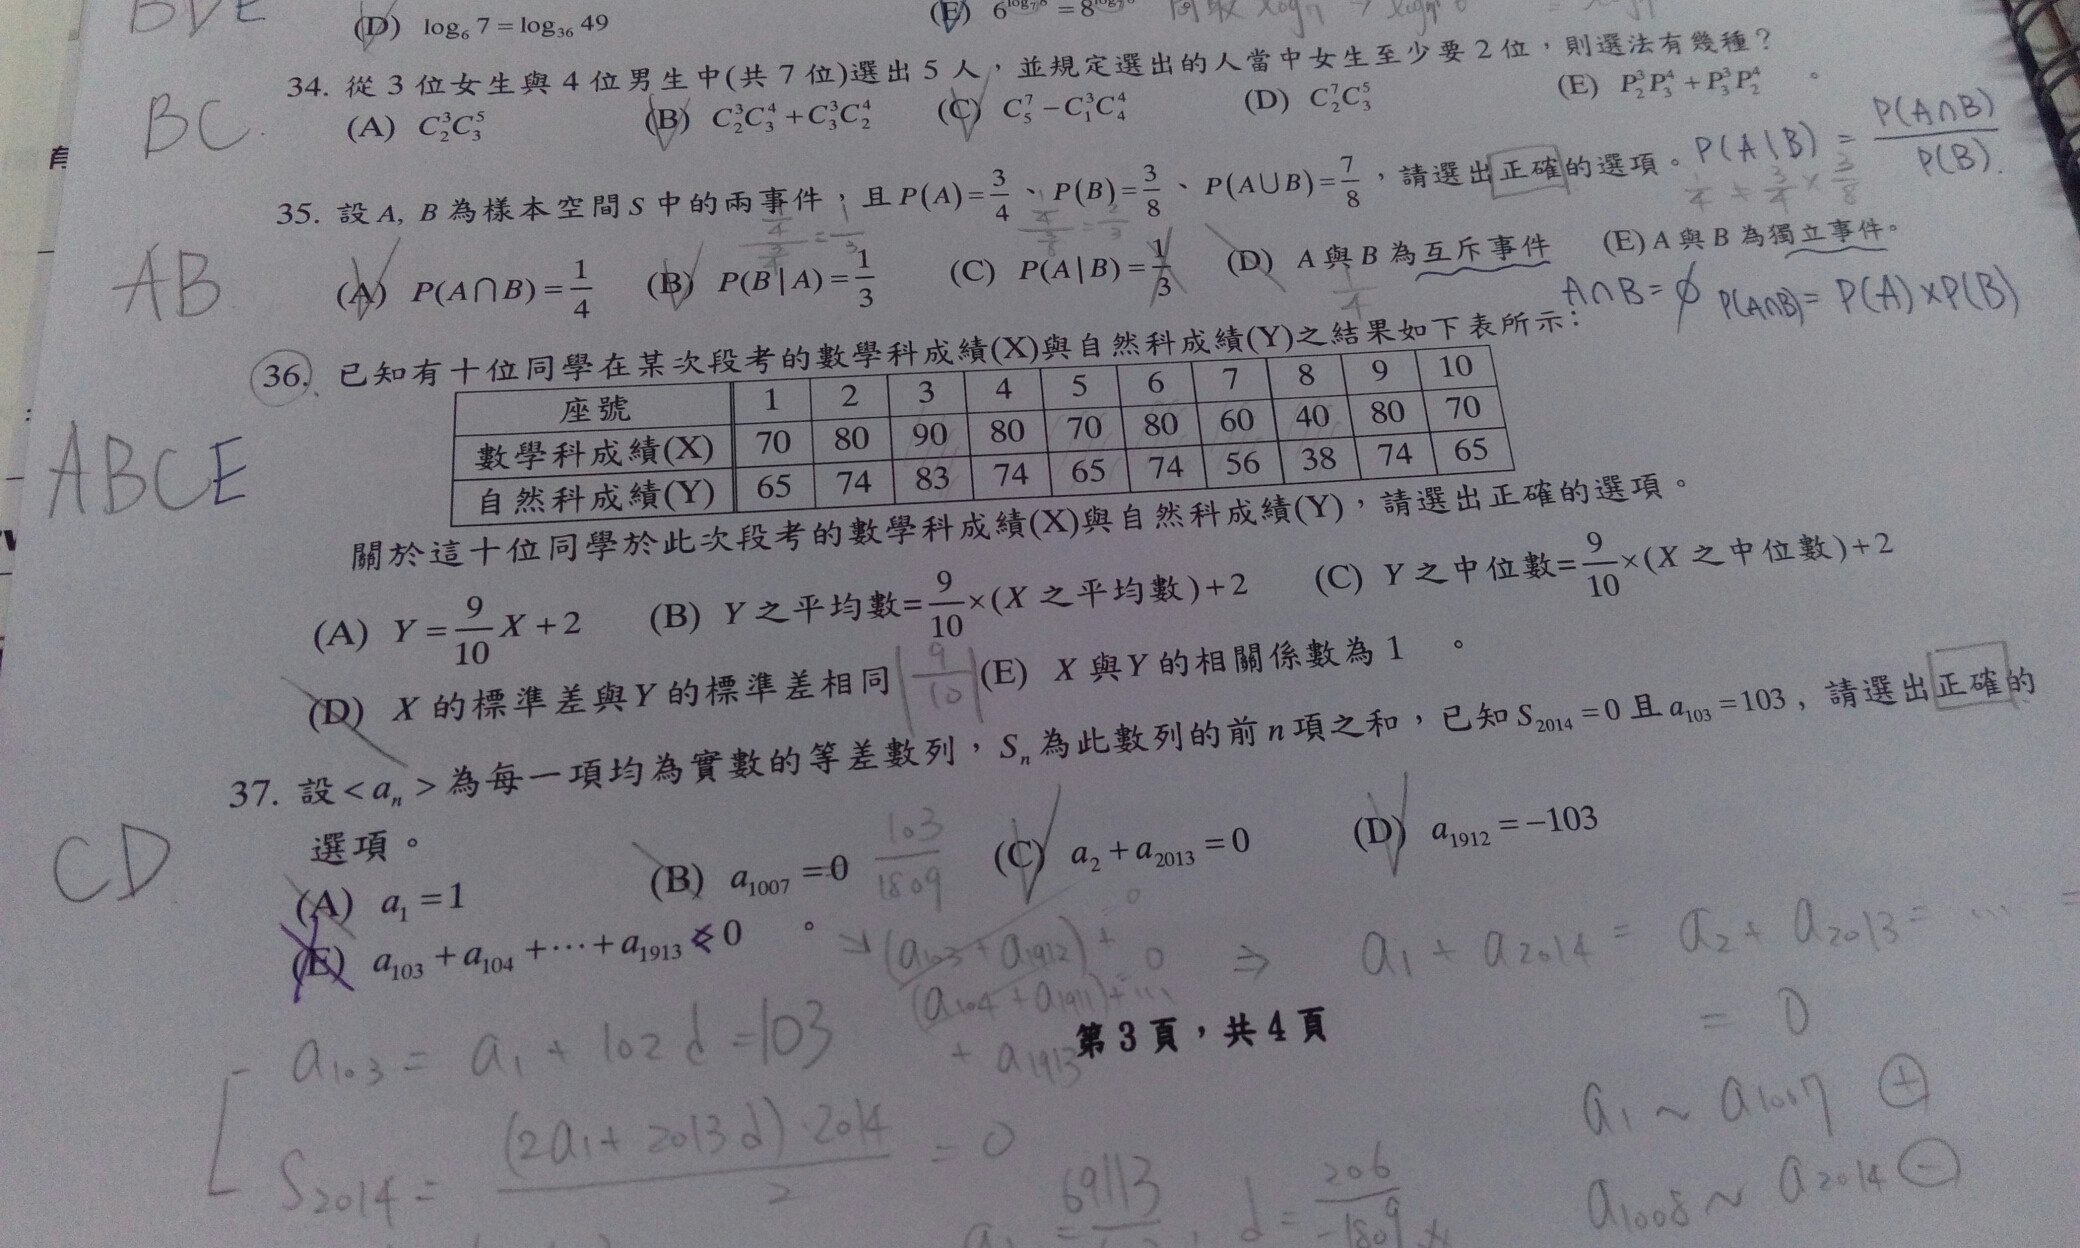 BDE (D) log₆ 7 = log₃₆ 49 (E) 6^{log₇ 8} = 8
34. 從 3 位女生與 4 位男生中(共 7 位)選出 5 人，並規定選出的人當中女生至少要 2 位，則選法有幾種？
BC. (A) C₂³C₃⁵ (B) C₂³C₃⁴ + C₃³C₂⁴ (C) C₅⁷ − C₁³C₄⁴ (D) C₂⁷C₃⁵ (E) P₂³P₃⁴ + P₃³P₂⁴ 。
有
P(A|B) = P(A∩B)/P(B).
35. 設 A, B 為樣本空間 S 中的兩事件，且 P(A)=3/4、P(B)=3/8、P(A∪B)=7/8，請選出正確的選項。
1/4 ≠ 3/4 × 3/8
AB (A) P(A∩B)=1/4 (B) P(B|A)=1/3 (C) P(A|B)=1/3 (D) A 與 B 為互斥事件 (E) A 與 B 為獨立事件。
A∩B=∅ P(A∩B)= P(A)×P(B)
36. 已知有十位同學在某次段考的數學科成績(X)與自然科成績(Y)之結果如下表所示：
座號 1 2 3 4 5 6 7 8 9 10
數學科成績(X) 70 80 90 80 70 80 60 40 80 70
自然科成績(Y) 65 74 83 74 65 74 56 38 74 65
ABCE
關於這十位同學於此次段考的數學科成績(X)與自然科成績(Y)，請選出正確的選項。
(A) Y = 9/10 X + 2 (B) Y 之平均數= 9/10 ×(X 之平均數)+2 (C) Y 之中位數= 9/10 ×(X 之中位數)+2
(D) X 的標準差與 Y 的標準差相同 |9/10| (E) X 與 Y 的相關係數為 1 。
37. 設 < aₙ > 為每一項均為實數的等差數列，Sₙ 為此數列的前 n 項之和，已知 S₂₀₁₄ = 0 且 a₁₀₃ = 103，請選出正確的
選項。
CD (A) a₁ = 1 (B) a₁₀₀₇ = 0 103/1809 (C) a₂ + a₂₀₁₃ = 0 (D) a₁₉₁₂ = −103
(E) a₁₀₃ + a₁₀₄ + ⋯ + a₁₉₁₃ < 0 。
⇒ (a₁₀₃ + a₁₉₁₂) + 0 ⇒ a₁ + a₂₀₁₄ = a₂ + a₂₀₁₃ = ...
(a₁₀₄ + a₁₉₁₁) + ...
= 0
+ a₁₉₁₃
第 3 頁，共 4 頁
a₁₀₃ = a₁ + 102d = 103
a₁ ~ a₁₀₀₇ ⊕
S₂₀₁₄ = (2a₁ + 2013d)·2014/2 = 0
a₁ = 69113 , d = 206/-1809
a₁₀₀₈ ~ a₂₀₁₄ ⊖